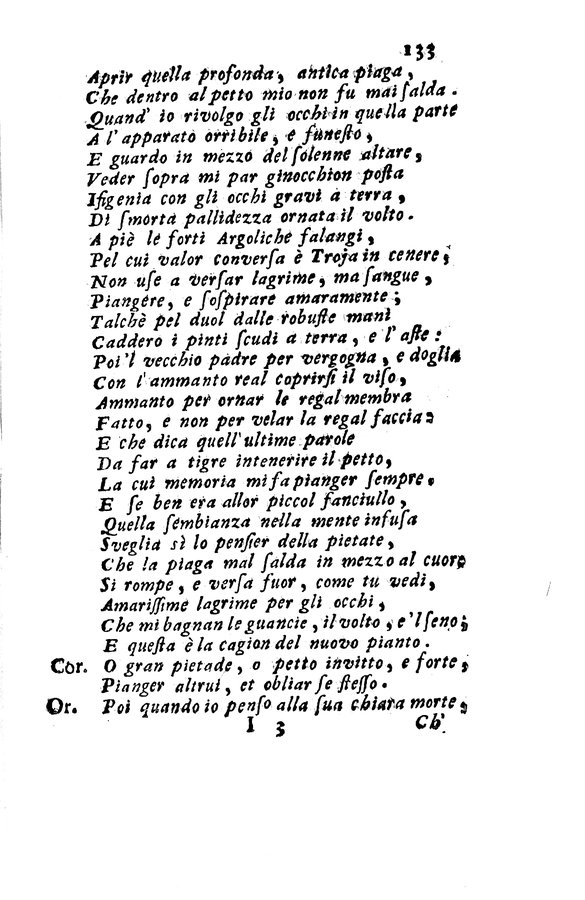 133
Aprir quella profonda, antica piaga,
Che dentro al petto mio non fu mai ſalda.
Quand' io rivolgo gli occhi in quella parte
A l' apparato orribile, e funeſto,
E guardo in mezzo del ſolenne altare,
Veder ſopra mi par ginocchion poſta
Ifigenia con gli occhi gravi a terra,
Di ſmorta pallidezza ornata il volto.
A piè le forti Argoliche falangi,
Pel cui valor converſa è Troja in cenere;
Non uſe a verſar lagrime, ma ſangue,
Piangere, e ſoſpirare amaramente;
Talchè pel duol dalle robuſte mani
Caddero i pinti ſcudi a terra, e l' aſte:
Poi 'l vecchio padre per vergogna, e doglia
Con l' ammanto real coprirſi il viſo,
Ammanto per ornar le regal membra
Fatto, e non per velar la regal faccia:
E che dica quell' ultime parole
Da far a tigre intenerire il petto,
La cui memoria mi fa pianger ſempre.
E ſe ben era allor piccol fanciullo,
Quella ſembianza nella mente infuſa
Sveglia sì lo penſier della pietate,
Che la piaga mal ſalda in mezzo al cuore
Si rompe, e verſa fuor, come tu vedi,
Amariſſime lagrime per gli occhi,
Che mi bagnan le guancie, il volto, e 'l ſeno;
E queſta è la cagion del nuovo pianto.
Cor. O gran pietade, o petto invitto, e forte,
Pianger altrui, et obliar ſe ſteſſo.
Or. Poi quando io penſo alla ſua chiara morte,
I 3 Ch'